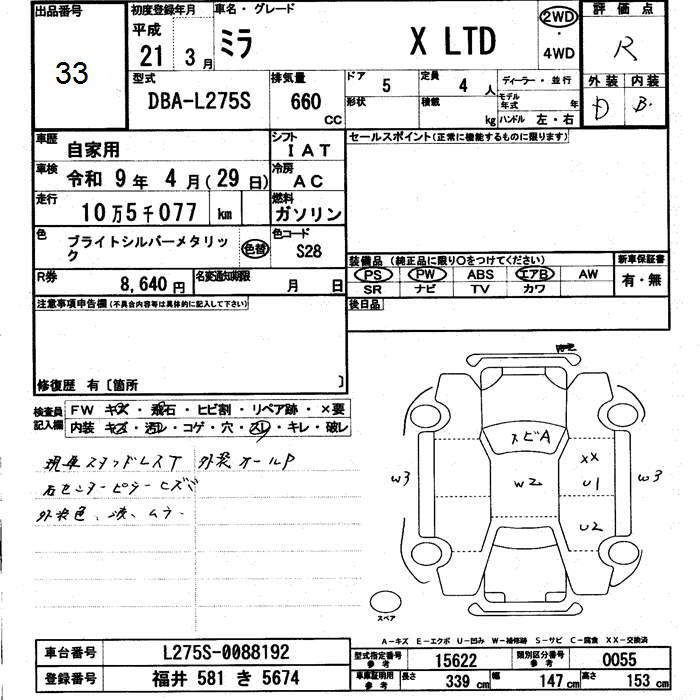 出品番号
33
初度登録年月
平成
21 3月
車名・グレード
ミラ X LTD
2WD
・
4WD
評価点
R
型式
DBA-L275S
排気量
660
CC
ドア 5
形状
定員 4 人
積載 kg
ディーラー・並行
モデル年式 年
ハンドル 左・右
外装 内装
D B
車歴
自家用
シフト
IAT
車検
令和 9年 4月(29日)
冷房
AC
走行
10万5千077 km
燃料
ガソリン
色
ブライトシルバーメタリック
色替
色コード
S28
R券
8,640 円
名変通知期限
月 日
セールスポイント(正常に機能するものに限ります)
装備品 (純正品に限り○をつけてください)
新車保証書
PS PW ABS エアB AW
SR ナビ TV カワ
有・無
後日品
注意事項申告欄(不具合内容等は具体的に記入して下さい)
修復歴 有〔箇所 〕
検査員
記入欄
FW キズ・飛石・ヒビ割・リペア跡・×要
内装 キズ・汚レ・コゲ・穴・スレ・キレ・破レ
現車スタッドレスT 外装オールP
右センターピラーヒズミ
外装色、淡、ムラ
スビA
W3
W2
XX
U1
W3
U2
スペア
A-キズ E-エクボ U-凹み W-補修跡 S-サビ C-腐食 XX-交換済
車台番号 L275S-0088192
登録番号 福井 581 き 5674
型式指定番号
参考
15622
類別区分番号
参考
0055
車庫証明用
参考
長さ 339 cm 幅 147 cm 高さ 153 cm